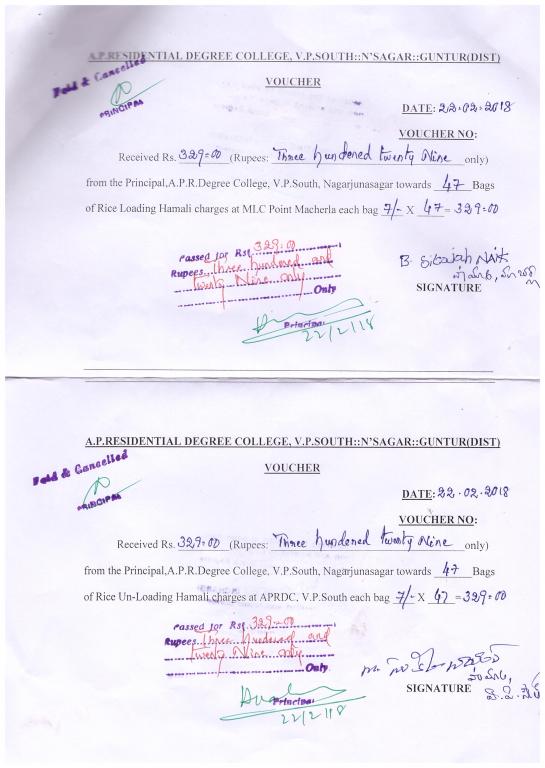 A.P.RESIDENTIAL DEGREE COLLEGE, V.P.SOUTH::N'SAGAR::GUNTUR(DIST)
Paid & Cancelled
PRINCIPAL
VOUCHER
DATE: 22.02.2018
VOUCHER NO:
Received Rs. 329=00 (Rupees: Three hundered twenty Nine only)
from the Principal,A.P.R.Degree College, V.P.South, Nagarjunasagar towards 47 Bags
of Rice Loading Hamali charges at MLC Point Macherla each bag 7/- X 47 = 329=00
Passed for Rs 329-00
Rupees three hundred and
twenty Nine only
Only
Principal
22/2/18
SIGNATURE
A.P.RESIDENTIAL DEGREE COLLEGE, V.P.SOUTH::N'SAGAR::GUNTUR(DIST)
Paid & Cancelled
PRINCIPAL
VOUCHER
DATE: 22.02.2018
VOUCHER NO:
Received Rs. 329=00 (Rupees: Three hundered twenty Nine only)
from the Principal,A.P.R.Degree College, V.P.South, Nagarjunasagar towards 47 Bags
of Rice Un-Loading Hamali charges at APRDC, V.P.South each bag 7/- X 47 = 329=00
Passed for Rs 329-00
Rupees three hundred and
twenty Nine only
Only
Principal
22/2/18
SIGNATURE